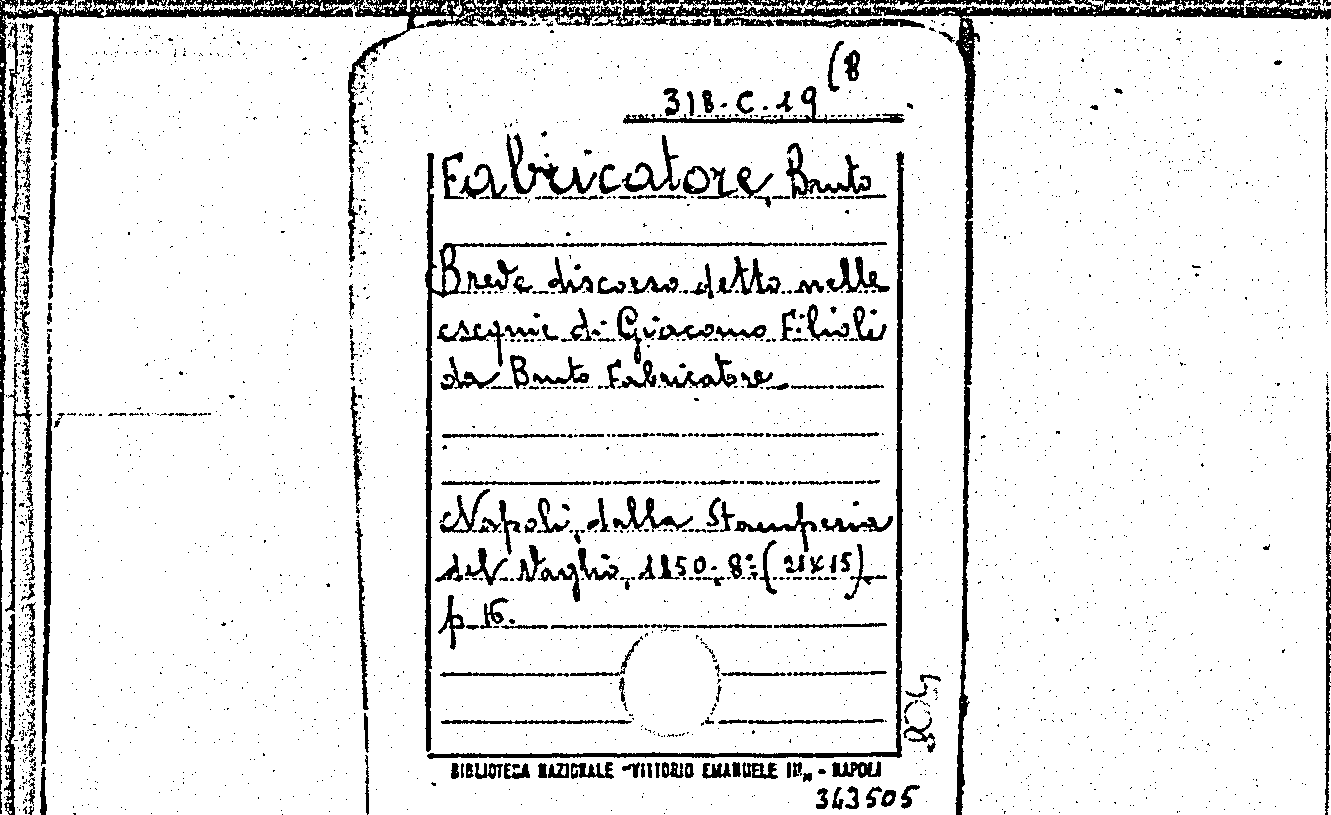 (8
318.C.19
Fabricatore, Bruto
Breve discorso detto nelle
esequie di Giacomo Filioli
da Bruto Fabricatore.
Napoli, dalla Stamperia
del Vaglio, 1850. 8º (21x15)
p. 16.
BIBLIOTECA NAZIONALE "VITTORIO EMANUELE III" - NAPOLI
343505